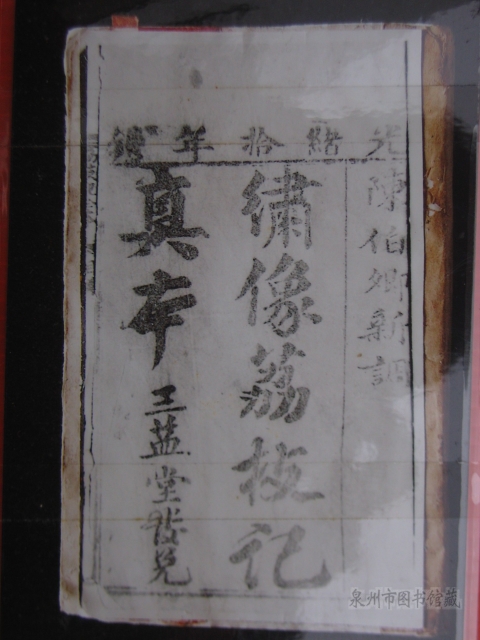 光緒拾年鐫
陳伯卿新調
繡像荔枝記
真本 三益堂發兌
泉州市图书馆藏